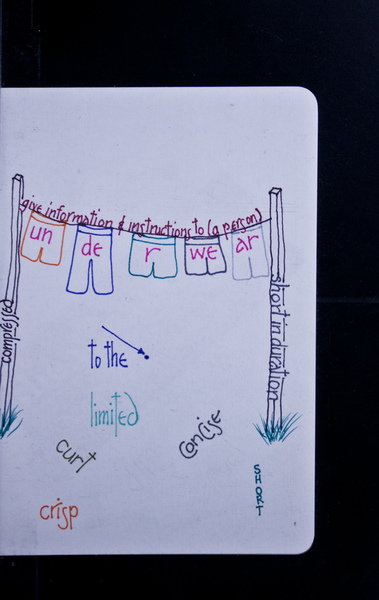 give information & instructions to (a person)
un de r we ar
compressed
short in duration
to the
limited
curt
concise
SHORT
crisp